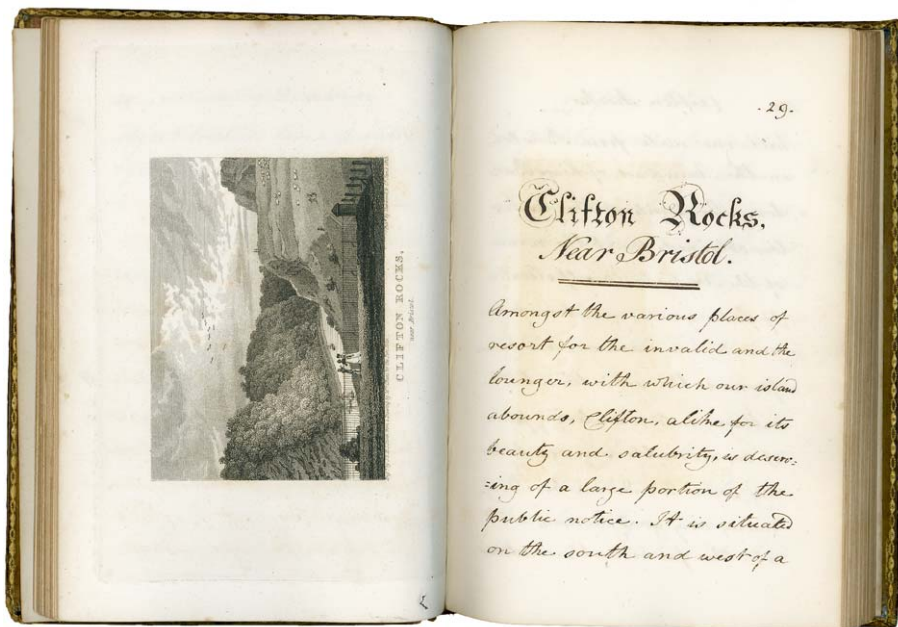 CLIFTON ROCKS,
near Bristol.
.29.
Clifton Rocks,
Near Bristol.
Amongst the various places of
resort for the invalid and the
lounger, with which our island
abounds, Clifton, alike for its
beauty and salubrity, is deserv:
:ing of a large portion of the
public notice. It is situated
on the south and west of a